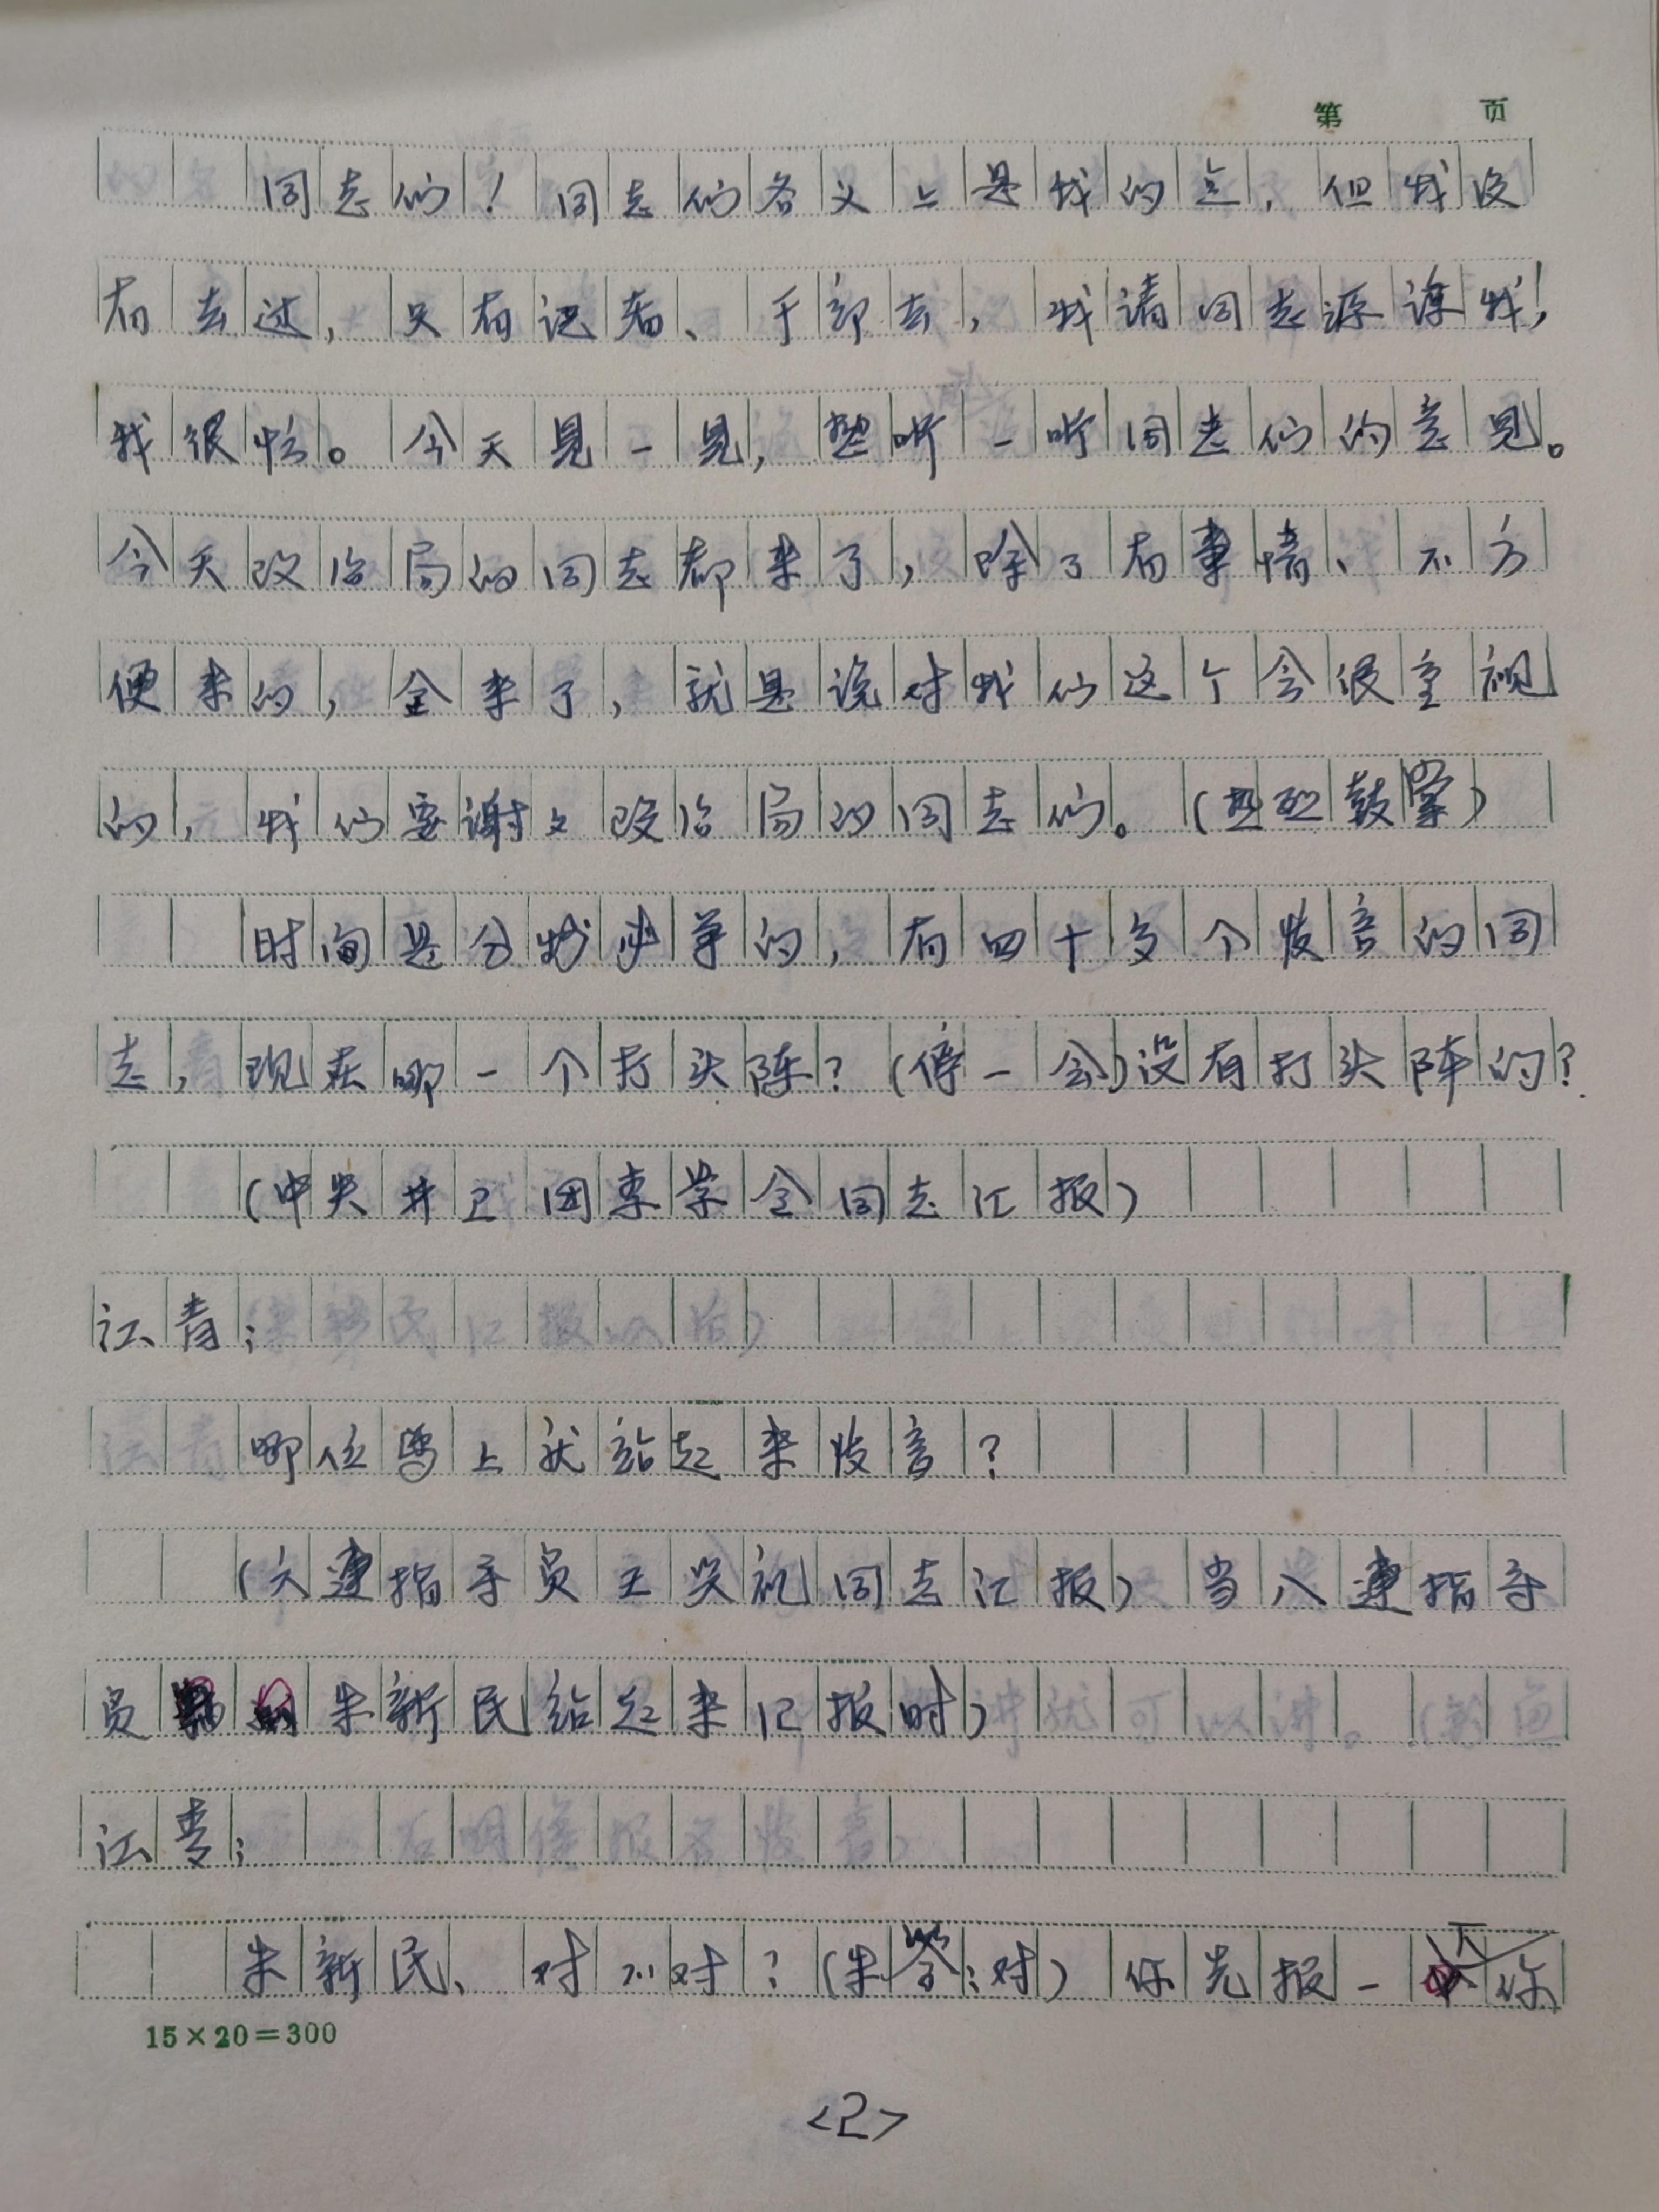 第 页
同志们！同志们名义上是我的点，但我没
有去过，只有记者、干部去，我请同志源谅我，
我很忙。今天见一见，想听一听同志们的意见。
今天政治局的同志都来了，除了有事情、不方
便来的，全来了，就是说对我们这个会很重视
的，我们要谢々政治局的同志们。（热烈鼓掌）
时间是分秒必争的，有四十多个发言的同
志，现在哪一个打头阵？（停一会）没有打头阵的？
（中央井卫团李学全同志汇报）
江青：
哪位马上就站起来发言？
（六连指导员王兴礼同志汇报）当八连指导
员朱新民站起来汇报时）
江青：
朱新民、对不对？（朱答：对）你先报一下你
15×20=300
<2>